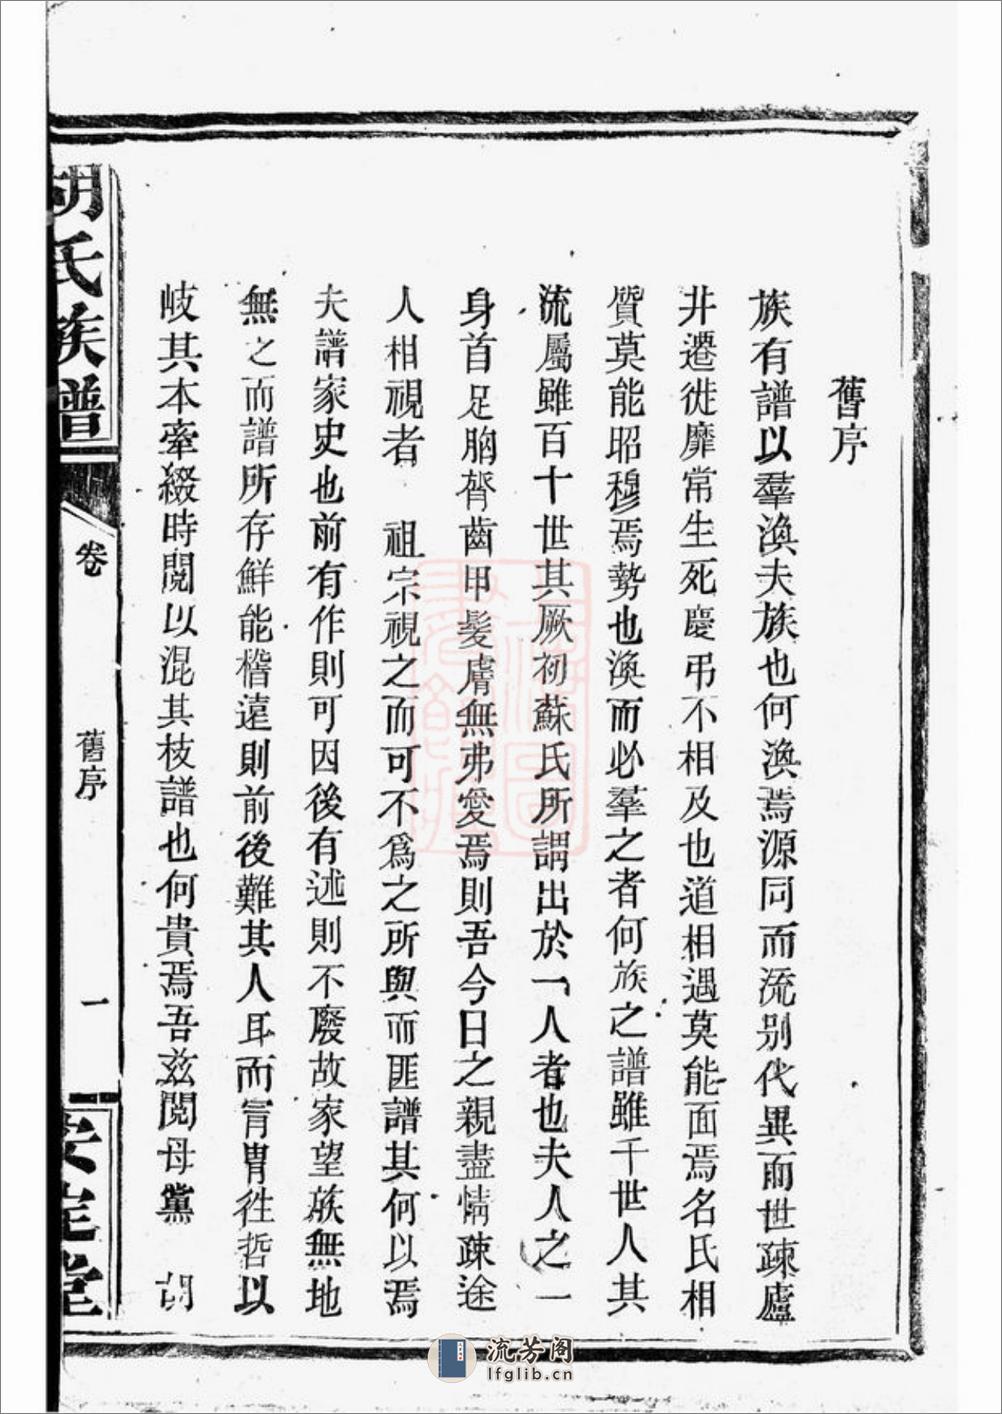 舊序
族有譜以羣渙夫族也何渙焉源同而流别代異而世疎廬
井遷徙靡常生死慶弔不相及也道相遇莫能面焉名氏相
質莫能昭穆焉勢也渙而必羣之者何族之譜雖千世人其
流屬雖百十世其厥初蘇氏所謂出於一人者也夫人之一
身首足胸膂齒甲髮膚無弗愛焉則吾今日之親盡情疎途
人相視者 祖宗視之而可不爲之所與而匪譜其何以焉
夫譜家史也前有作則可因後有述則不廢故家望族無地
無之而譜所存鮮能稽遠則前後難其人耳而冐胄徃哲以
岐其本牽綴時閥以混其枝譜也何貴焉吾兹閱母黨 胡
胡氏族譜
卷
舊序
一
安定堂
流芳阁
lfglib.cn